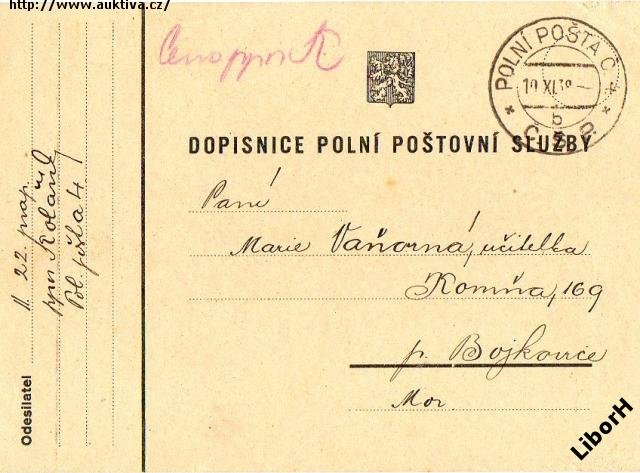 http://www.auktiva.cz/
POLNÍ POŠTA Č. 4
10 XI. 38
b
Č. S. P.
DOPISNICE POLNÍ POŠTOVNÍ SLUŽBY
Paní
Marie Vaňorná, učitelka
Komňa, 169
p. Bojkovice
Mor.
Odesilatel
22. prap.
Pol. pošta 4
LiborH